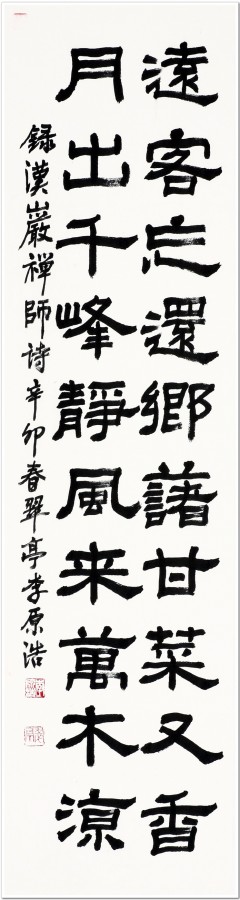 遠客忘還鄉藷甘菜又香
月出千峰靜風来萬木涼
録漢巖禅師詩辛卯春翠亭李原浩